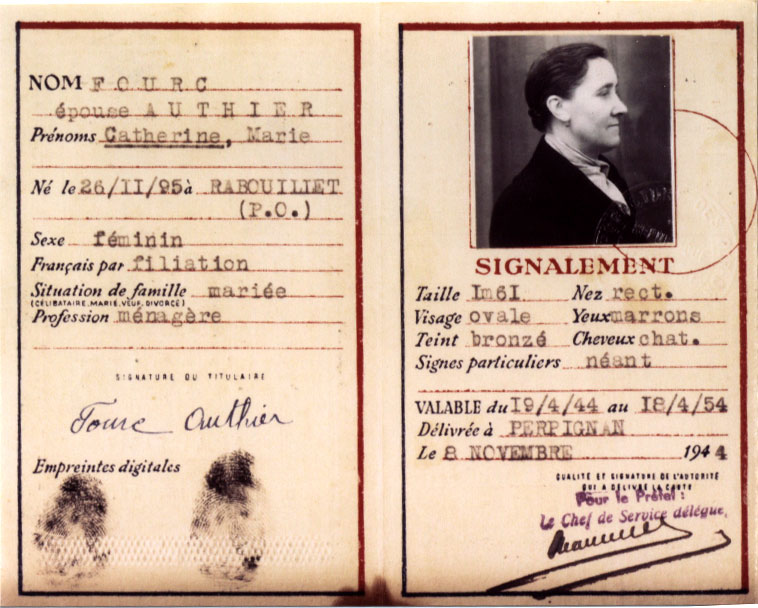 NOM FOURC
épouse AUTHIER
Prénoms Catherine, Marie
Né le 26/II/95 à RABOUILLET
(P.O.)
Sexe féminin
Français par filiation
Situation de famille mariée
(CÉLIBATAIRE, MARIÉ, VEUF, DIVORCÉ)
Profession ménagère
SIGNATURE DU TITULAIRE
Fourc Authier
Empreintes digitales
SIGNALEMENT
Taille Im6I Nez rect.
Visage ovale Yeux marrons
Teint bronzé Cheveux chat.
Signes particuliers néant
VALABLE du I9/4/44 au I8/4/54
Délivrée à PERPIGNAN
Le 8 NOVEMBRE 1944
QUALITÉ ET SIGNATURE DE L'AUTORITÉ
QUI A DÉLIVRÉ LA CARTE
Pour le Préfet :
Le Chef de Service délégué,